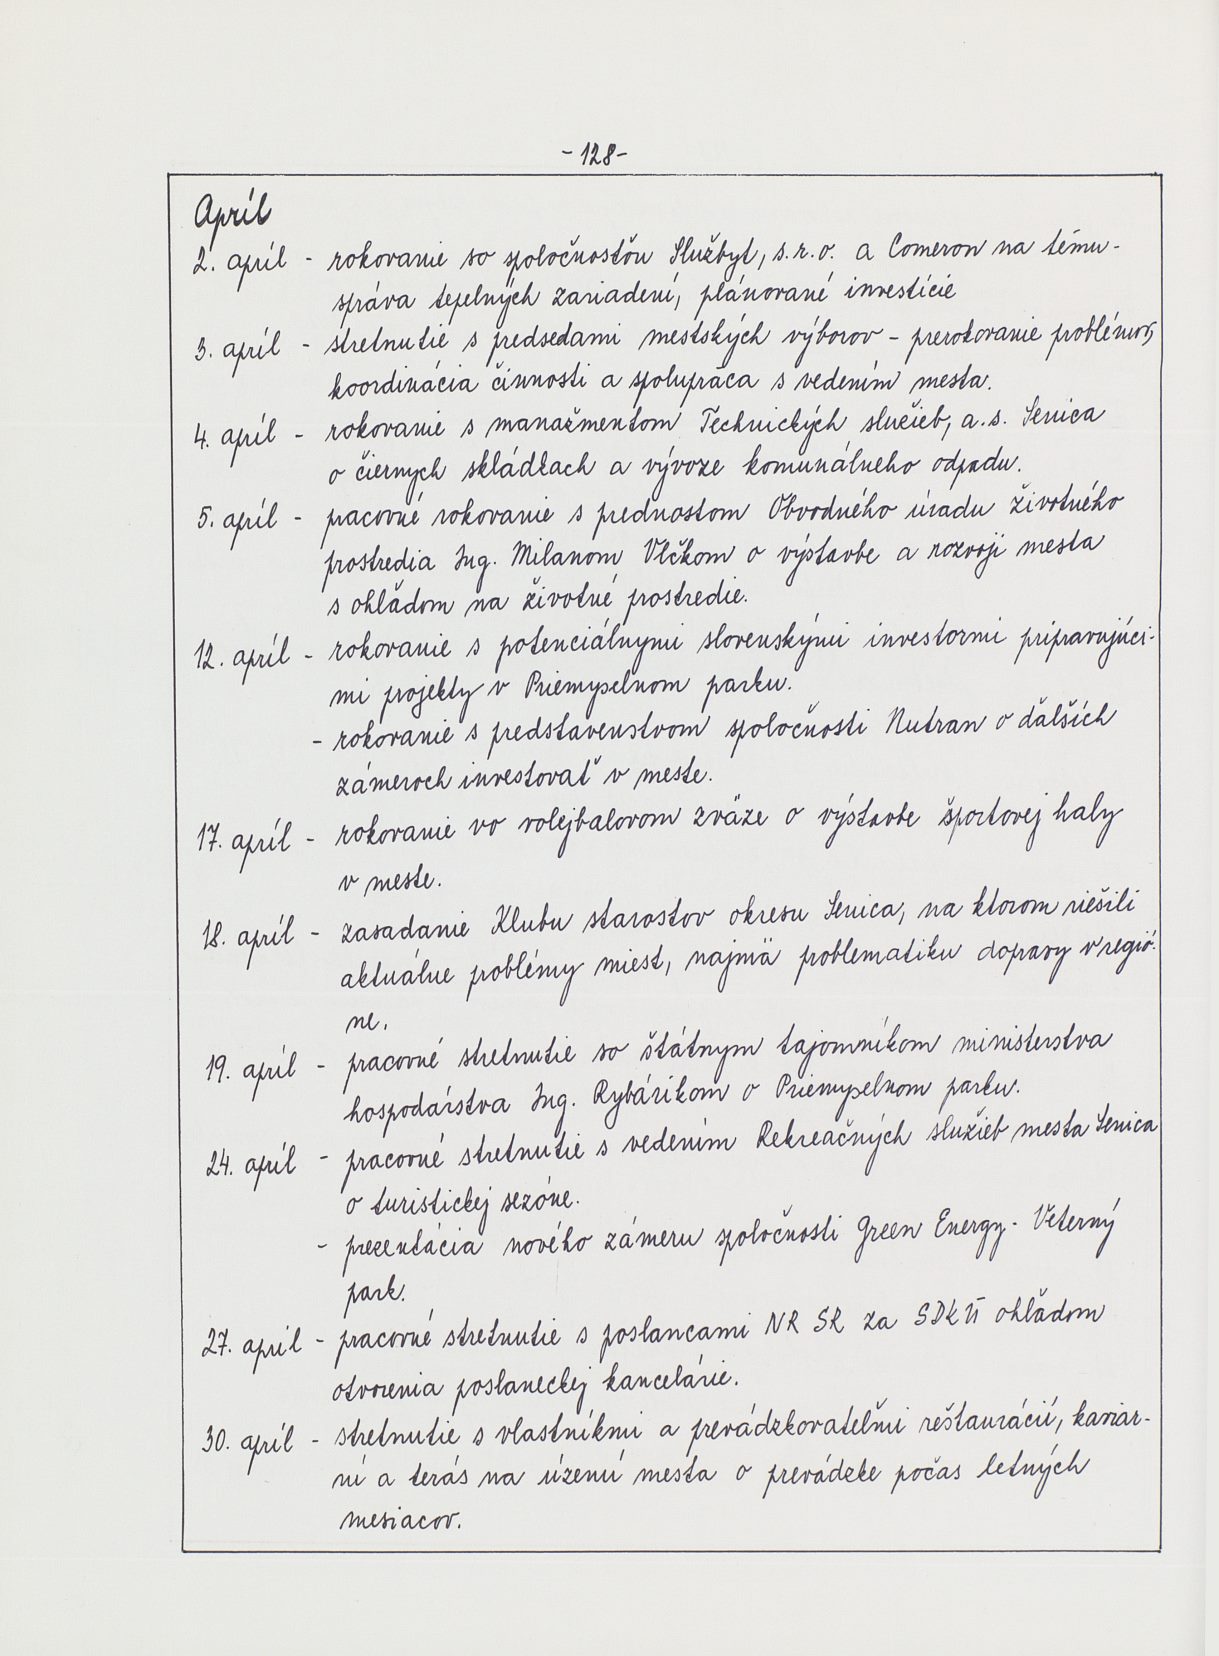 - 128 -
Apríl
2. apríl - rokovanie so spoločnosťou Službyt, s.r.o. a Comeron na tému -
správa tepelných zariadení, plánované investície
3. apríl - stretnutie s predsedami mestských výborov - prerokovanie problémov,
koordinácia činnosti a spolupráca s vedením mesta.
4. apríl - rokovanie s manažmentom Technických služieb, a.s. Senica
o čiernych skládkach a vývoze komunálneho odpadu.
5. apríl - pracovné rokovanie s prednostom Obvodného úradu životného
prostredia Ing. Milanom Vlčkom o výstavbe a rozvoji mesta
s ohľadom na životné prostredie.
12. apríl - rokovanie s potenciálnymi slovenskými investormi pripravujúci-
mi projekty v Priemyselnom parku.
- rokovanie s predstavenstvom spoločnosti Nutran o ďalších
zámeroch investovať v meste.
17. apríl - rokovanie vo volejbalovom zväze o výstavbe športovej haly
v meste.
18. apríl - zasadanie Klubu starostov okresu Senica, na ktorom riešili
aktuálne problémy miest, najmä problematiku dopravy v regió-
ne.
19. apríl - pracovné stretnutie so štátnym tajomníkom ministerstva
hospodárstva Ing. Rybárikom o Priemyselnom parku.
24. apríl - pracovné stretnutie s vedením Rekreačných služieb mesta Senica
o turistickej sezóne.
- prezentácia nového zámeru spoločnosti Green Energy - Veterný
park.
27. apríl - pracovné stretnutie s poslancami NR SR za SDKÚ ohľadom
otvorenia poslaneckej kancelárie.
30. apríl - stretnutie s vlastníkmi a prevádzkovateľmi reštaurácií, kaviar-
ní a terás na území mesta o prevádzke počas letných
mesiacov.